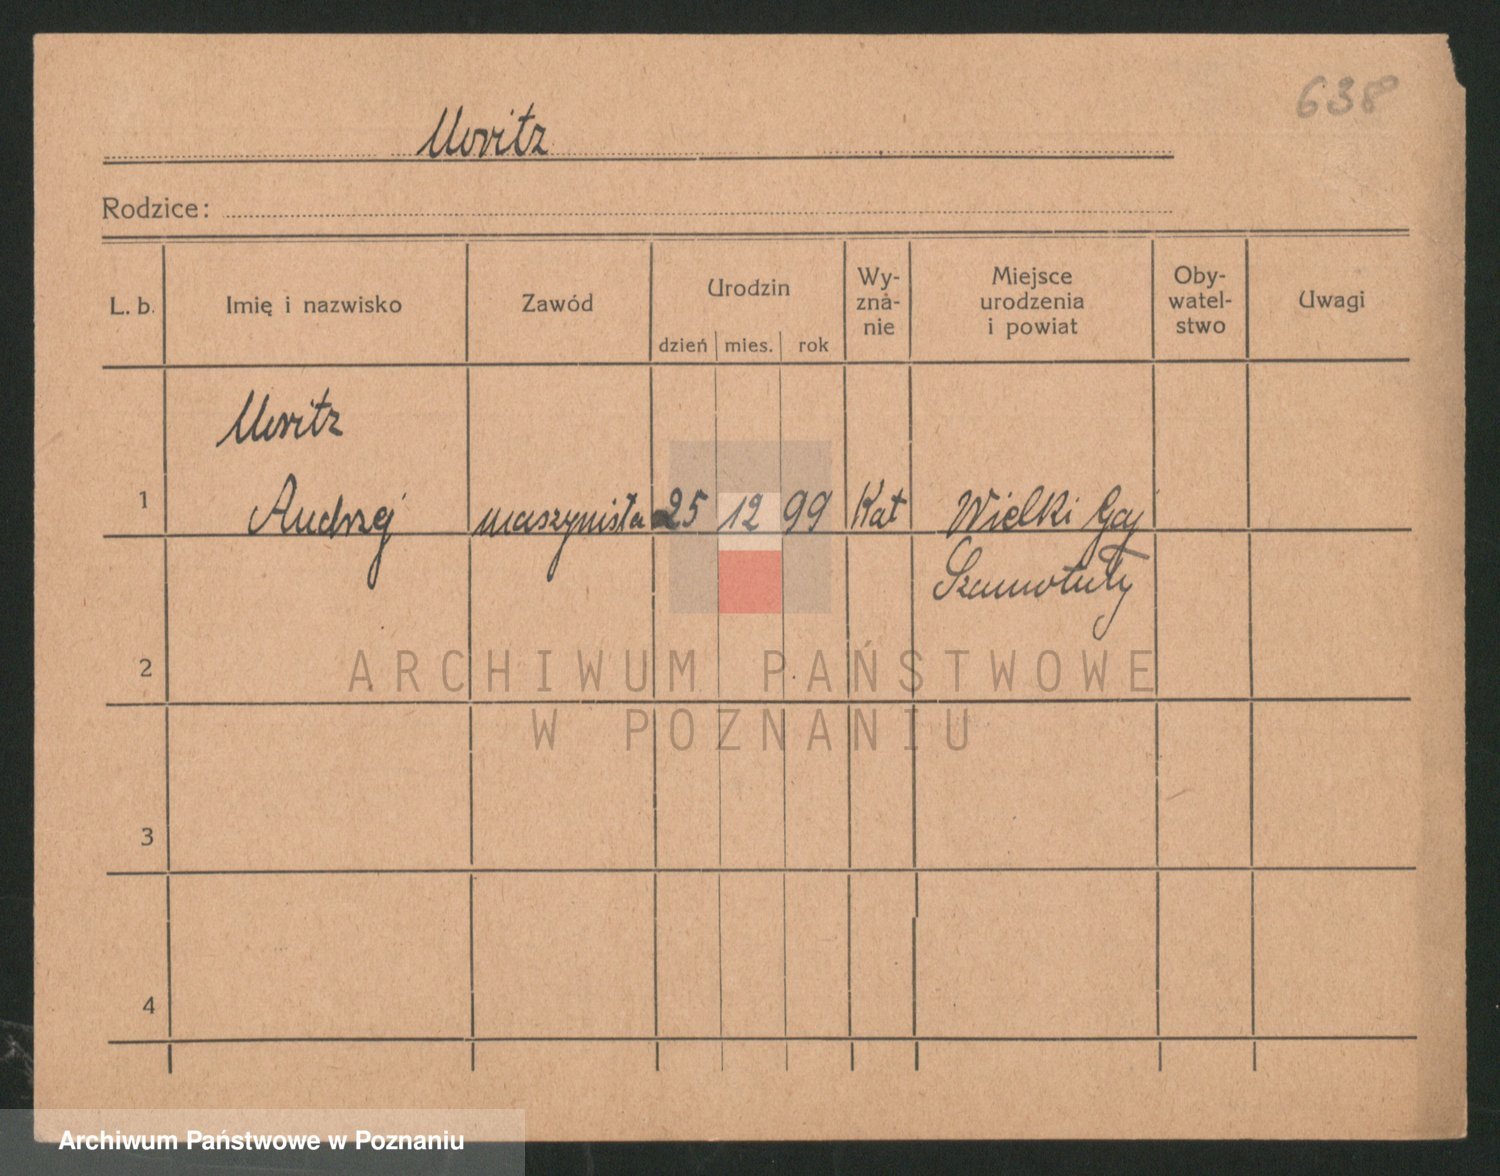 638
Moritz
Rodzice:
L. b. Imię i nazwisko Zawód Urodzin Wy-zna-nie Miejsce urodzenia i powiat Oby-watel-stwo Uwagi
dzień mies. rok
Moritz
1 Andrzej maszynista 25 12 99 Kat Wielki Gaj
Szamotuły
2
ARCHIWUM PAŃSTWOWE
W POZNANIU
3
4
Archiwum Państwowe w Poznaniu